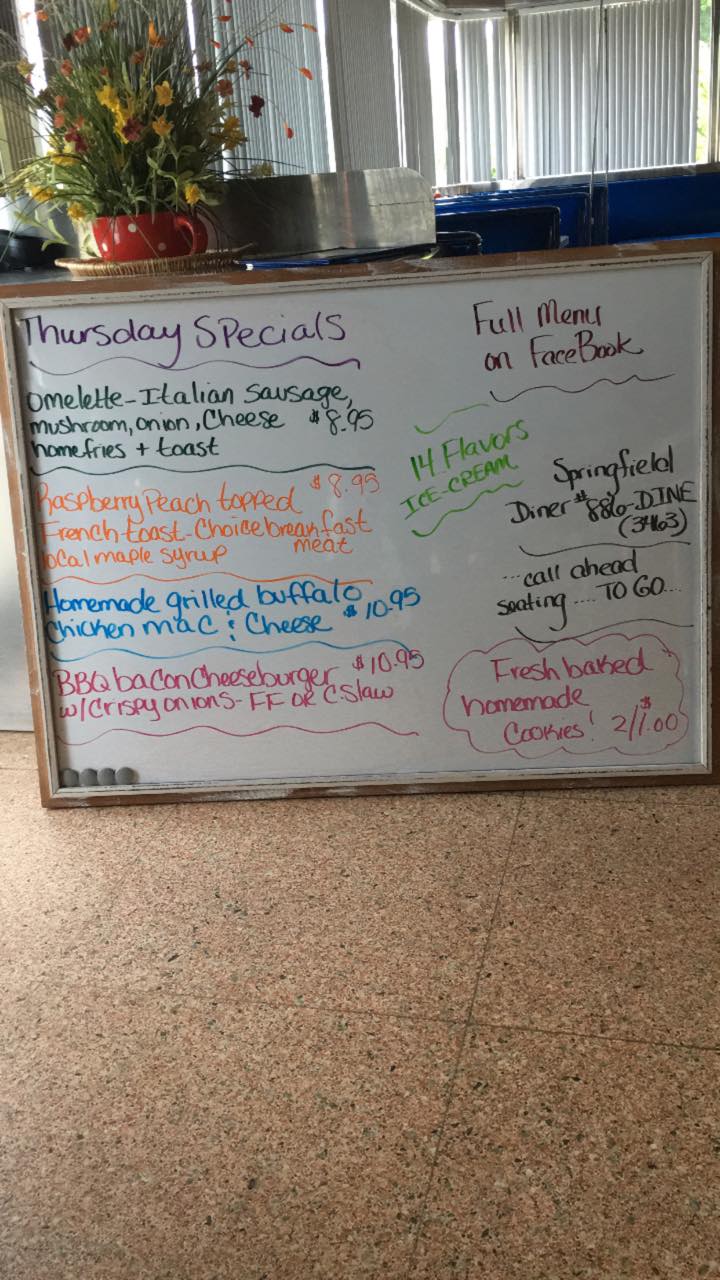 Thursday Specials
omelette - Italian sausage,
mushroom, onion, Cheese $8.95
homefries + toast
Raspberry Peach topped $8.95
French toast - Choice breakfast
local maple syrup meat
Homemade grilled buffalo
Chicken mac & Cheese $10.95
BBQ bacon Cheeseburger $10.95
w/Crispy onions - FF OR C.Slaw
Full Menu
on FaceBook
14 Flavors
ICE-CREAM
Springfield
Diner # 886-DINE
(3463)
...call ahead
seating .... TO GO...
Fresh baked
homemade
Cookies! 2/$1.00